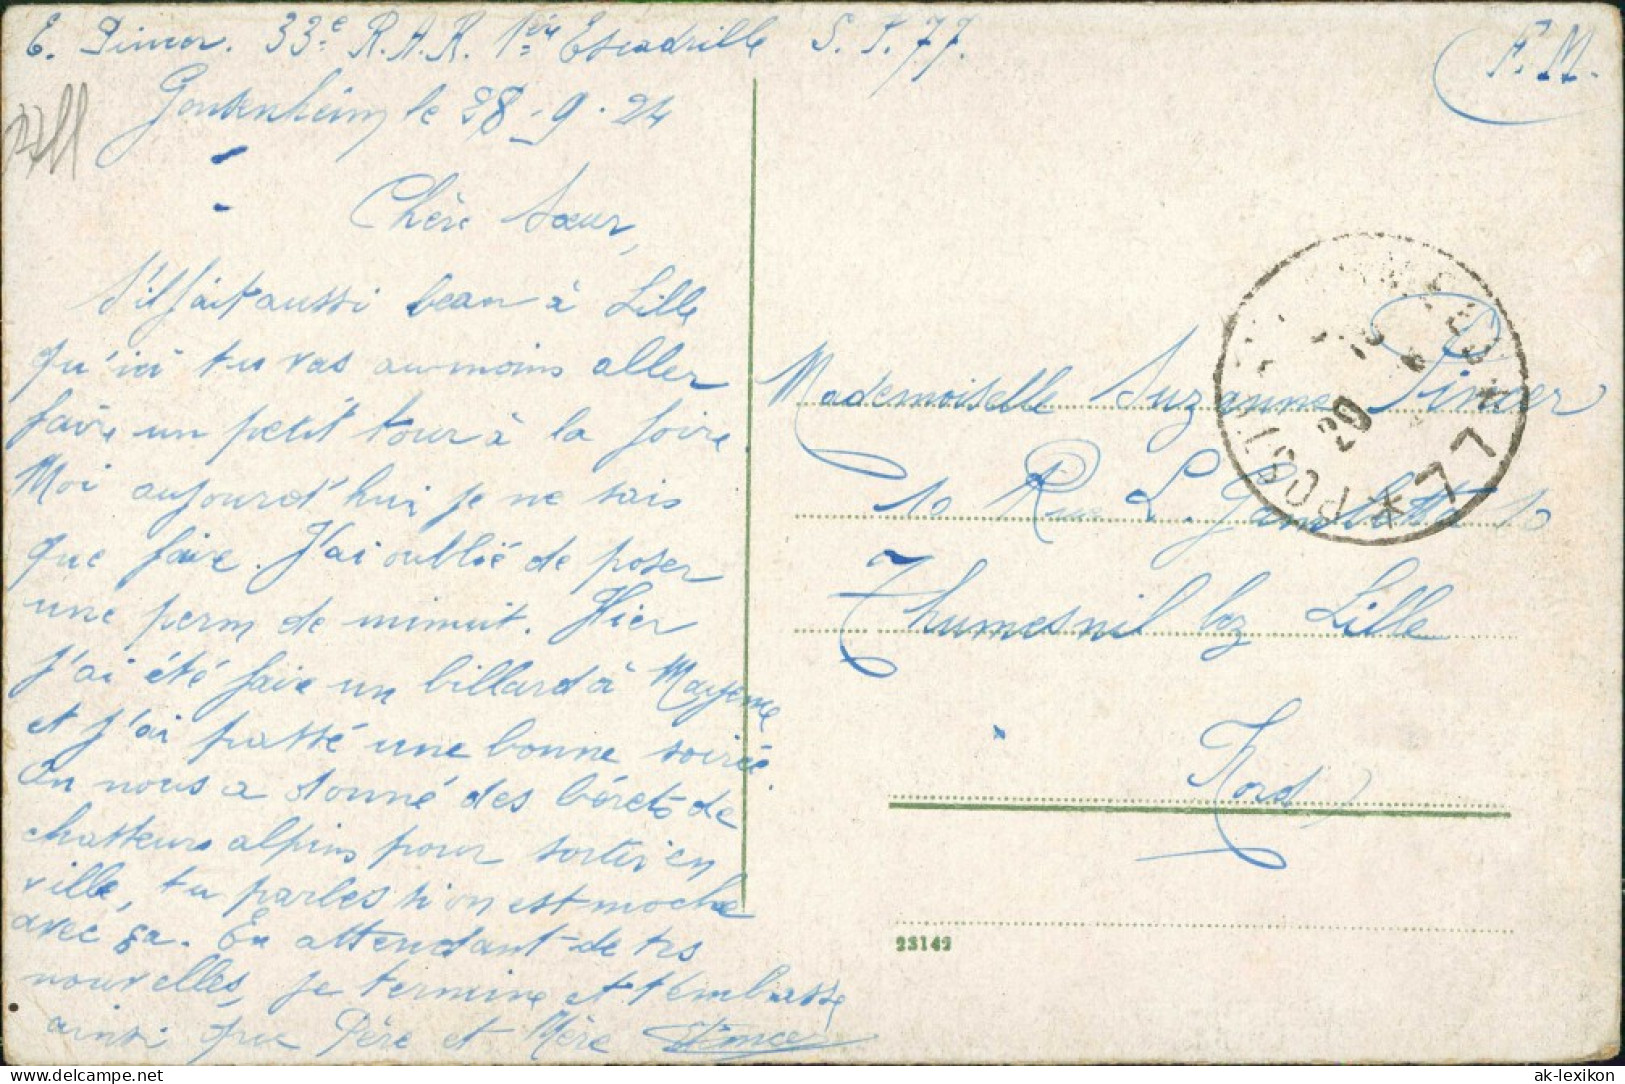 E. Pincer. 33e R.A.K. 1ère Escadrille S.P. 77.
F.M.
Gonsenheim le 28-9-24
Chère Sœur,
S'il fait aussi beau à Lille
qu'ici tu vas au moins aller
faire un petit tour à la foire.
Moi aujourd'hui je ne sais
que faire. J'ai oublié de poser
une perm de minuit. Hier
j'ai été faire un billard à Mayence
et j'ai passé une bonne soirée.
On nous a donné des bérets de
chasseurs alpins pour sortir en
ville, tu parles si on est moche
avec ça. En attendant de tes
nouvelles, je termine et t'embrasse
ainsi que Père et Mère
Mademoiselle Suzanne Pincer
10 Rue L. Gambetta 10
Thumesnil lez Lille
Nord
POSTE AUX ARMEES
29
* 77 *
23142
delcampe.net
ak-lexikon